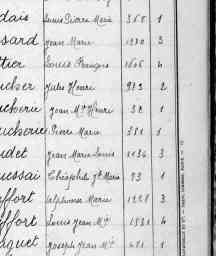 dais Louis Pierre Marie 368 1
ssard Jean Marie 1230 3
ttier Louis François 1606 4
ucher Jules Henri 983 2
ucherie Jean Mie Henri 38 1
ucherie Pierre Marie 381 1
udet Jean Marie Louis 1134 3
ussai Théophile Jh Marie 93 1
uffort Alphonse Marie 1228 3
uffort Louis Jean Mie 1531 4
uquet Joseph Jean Mie 481 1